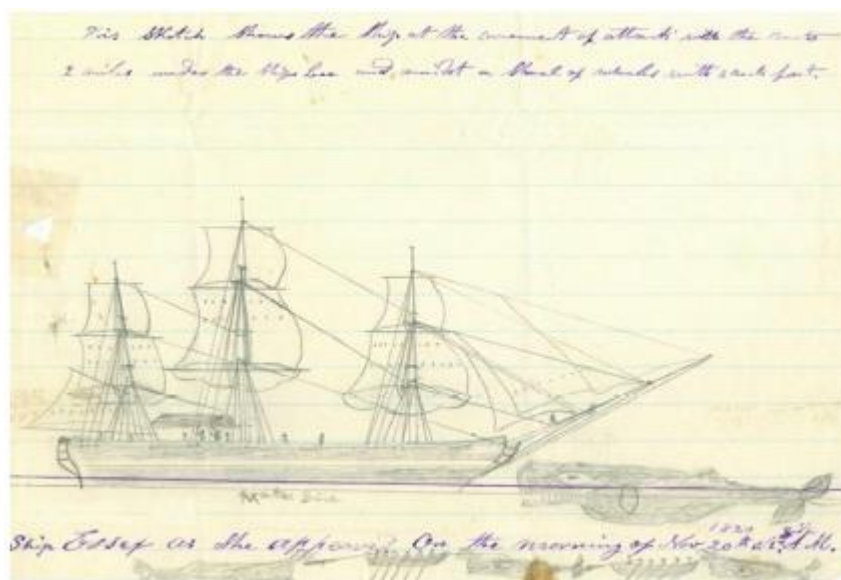 This Sketch Shows the Ship at the moment of attack with the
2 miles under the Ships lee and amidst a Shoal of whales with
Water Line
Ship Essex as she appeared On the morning of Nov 20th 1820 A.M.